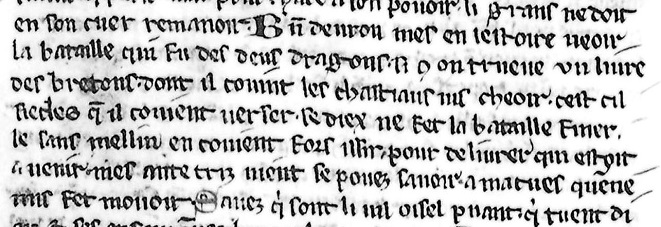 en son cuer remanoir. Bñ deuron mes en lestoire ueoir
la bataille qui fu des deus dragons. si 9 on trueue un liure
des bretons. dont il couint les chastiaus ius cheoir. cest cil
siecles q̃ il couient uerser. se diex ne fet la bataille finer.
le sans mellin en couient fors issir. pour deliurer qui est oit
a uenir. mes antecriz uient se pouez sauoir. a macues quene
mis fet mouoir. Sauez q̃ sont li uil oisel puant. q̃ tuent di